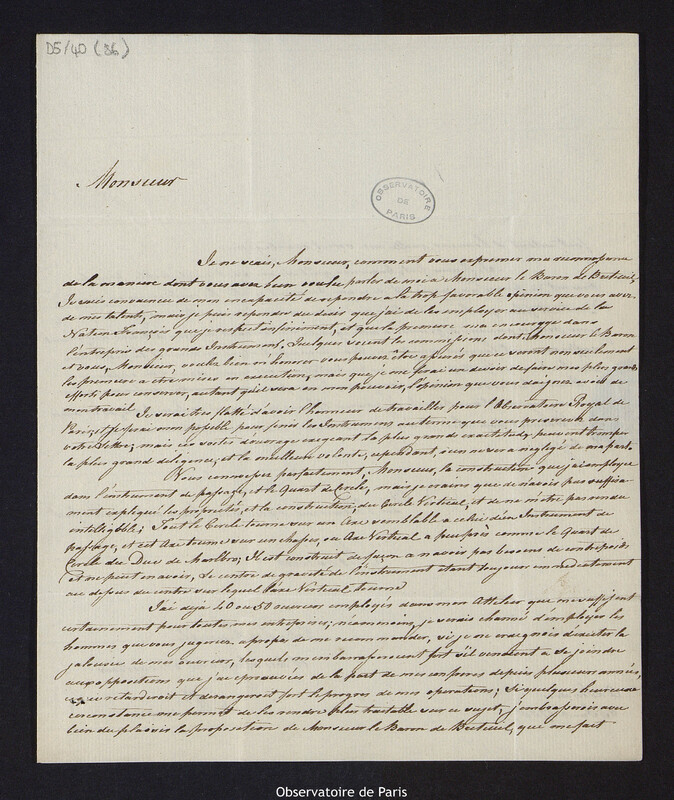 D5/40 (36)
Monsieur
OBSERVATOIRE
DE
PARIS
Je ne sçais, Monsieur, comment vous exprimer ma reconnoissance
de la maniere dont vous avez bien voulu parler de moi a Monsieur le Baron de Breteuil,
Je suis convaincu de mon incapacité de repondre a la trop favorable opinion que vous avez
de mes talents, mais je puis repondre du desir que j'ai de les employer au service de la
Nation François que je respect infiniment, et que la premiere m'a encouragé dans
l'entreprise des grands Instrumens. Quelques soient les commissions dont Monsieur le Baron
et vous, Monsieur, voulez bien m'honorer vous pouvez être assurés que ce seront non seulement
les premieres a etre mises en execution, mais que je me ferai un devoir de faire mes plus grands
efforts pour conserver, autant qu'il sera en mon pouvoir, l'opinion que vous daignez avoir de
mon travail.
Je serai tres flatté d'avoir l'honneur de travailler pour l'Observatoire Royal de
Paris, et je ferai mon possible pour finir les Instrumens au terme que vous prescrivez dans
votre Lettre; mais ces sortes d'ouvrage exigeant la plus grande exactitude peuvent tromper
la plus grand diligence, et la meilleur volonté, cependant rien ne sera neglegé de ma part.
Vous connoissez parfaitement, Monsieur, la construction que j'ai employé
dans l'instrument de passage, et le Quart de Cercle, mais je crains que de n'avoir pas suffisa-
ment expliqué les propriétés, et la construction, du Cercle Vertical, et de ne m'etre pas rendu
intelligible; Tout le Cercle tourne sur un Axe semblable a celui d'un Instrument de
Passage, et cet Axe tourne sur un chassis, ou Axe Vertical a peu près comme le Quart de
Cercle du Duc de Marlbro; Il est construit de façon a n'avoir pas besoin de contrepoids
et ne peut en avoir, Le centre de gravité de l'instrument etant toujours immediatement
au dessus du centre sur lequel l'axe Vertical tourne
J'ai deja 40 ou 50 ouvriers employés dans mon Attelier que me suffisent
certainement pour toutes mes entreprises; néanmoins, je serais charmé d'employer les
hommes que vous jugeriez a propos de me recommander, si je ne craignois d'exciter la
jalousie de mes ouvriers, lesquels m'embarasseroient fort s'il venoient a se joindre
aux oppositions que j'ai eprouvées de la part de mes confreres depuis plusieurs années,
ce retarderoit et derangeroit fort le progres de mes operations; Si quelques heureuse
circonstance me permet de les rendre plus traitable sur ce sujet, j'embrasserois avec
bien du plaisir la proposition de Monsieur le Baron de Breteuil, que me fait
Observatoire de Paris